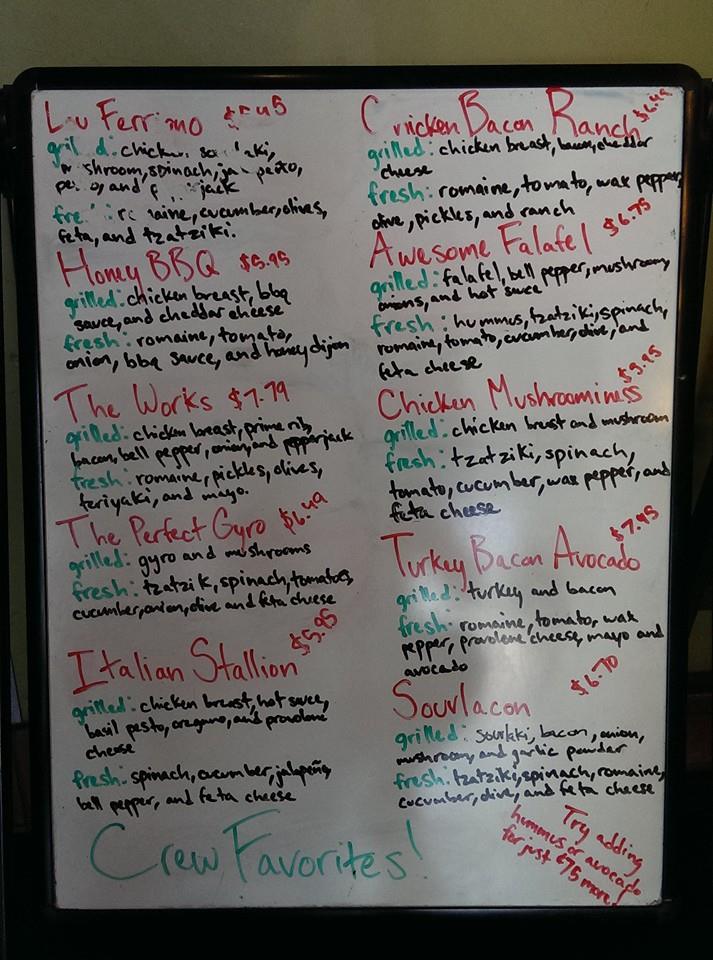 grilled: chicken
shroom, spinach,
and jack
cucumber, olives,
feta, and tzatziki.
Honey BBQ $5.95
grilled: chicken breast, bbq
sauce, and cheddar cheese
fresh: romaine, tomato,
onion, bbq sauce, and honey dijon
The Works $7.79
grilled: chicken breast, prime rib,
bacon, bell pepper, onion, and pepperjack
fresh: romaine, pickles, olives,
teriyaki, and mayo.
The Perfect Gyro $6.49
grilled: gyro and mushrooms
fresh: tzatzik, spinach, tomatoes,
cucumber, onion, olive and feta cheese
Italian Stallion $5.95
grilled: chicken breast, hot sauce,
basil pesto, oregano, and provolone
cheese
fresh: spinach, cucumber, jalapeño,
bell pepper, and feta cheese
Crew Favorites!
Chicken Bacon Ranch $6.49
grilled: chicken breast, bacon, cheddar
cheese
fresh: romaine, tomato, wax pepper,
olive, pickles, and ranch
Awesome Falafel $6.75
grilled: falafel, bell pepper, mushroom,
onions, and hot sauce
fresh: hummus, tzatziki, spinach,
romaine, tomato, cucumber, olive, and
feta cheese
Chicken Mushroominess
grilled: chicken breast and mushroom
fresh: tzatziki, spinach,
tomato, cucumber, wax pepper, and
feta cheese
Turkey Bacon Avocado $7.95
grilled: turkey and bacon
fresh: romaine, tomato, wax
pepper, provolone cheese, mayo and
avocado
Souvlacon $6.70
grilled: souvlaki, bacon, onion,
mushroom, and garlic powder
fresh: tzatziki, spinach, romaine,
cucumber, olive, and feta cheese
Try adding
hummus or avocado
for just ¢75 more!